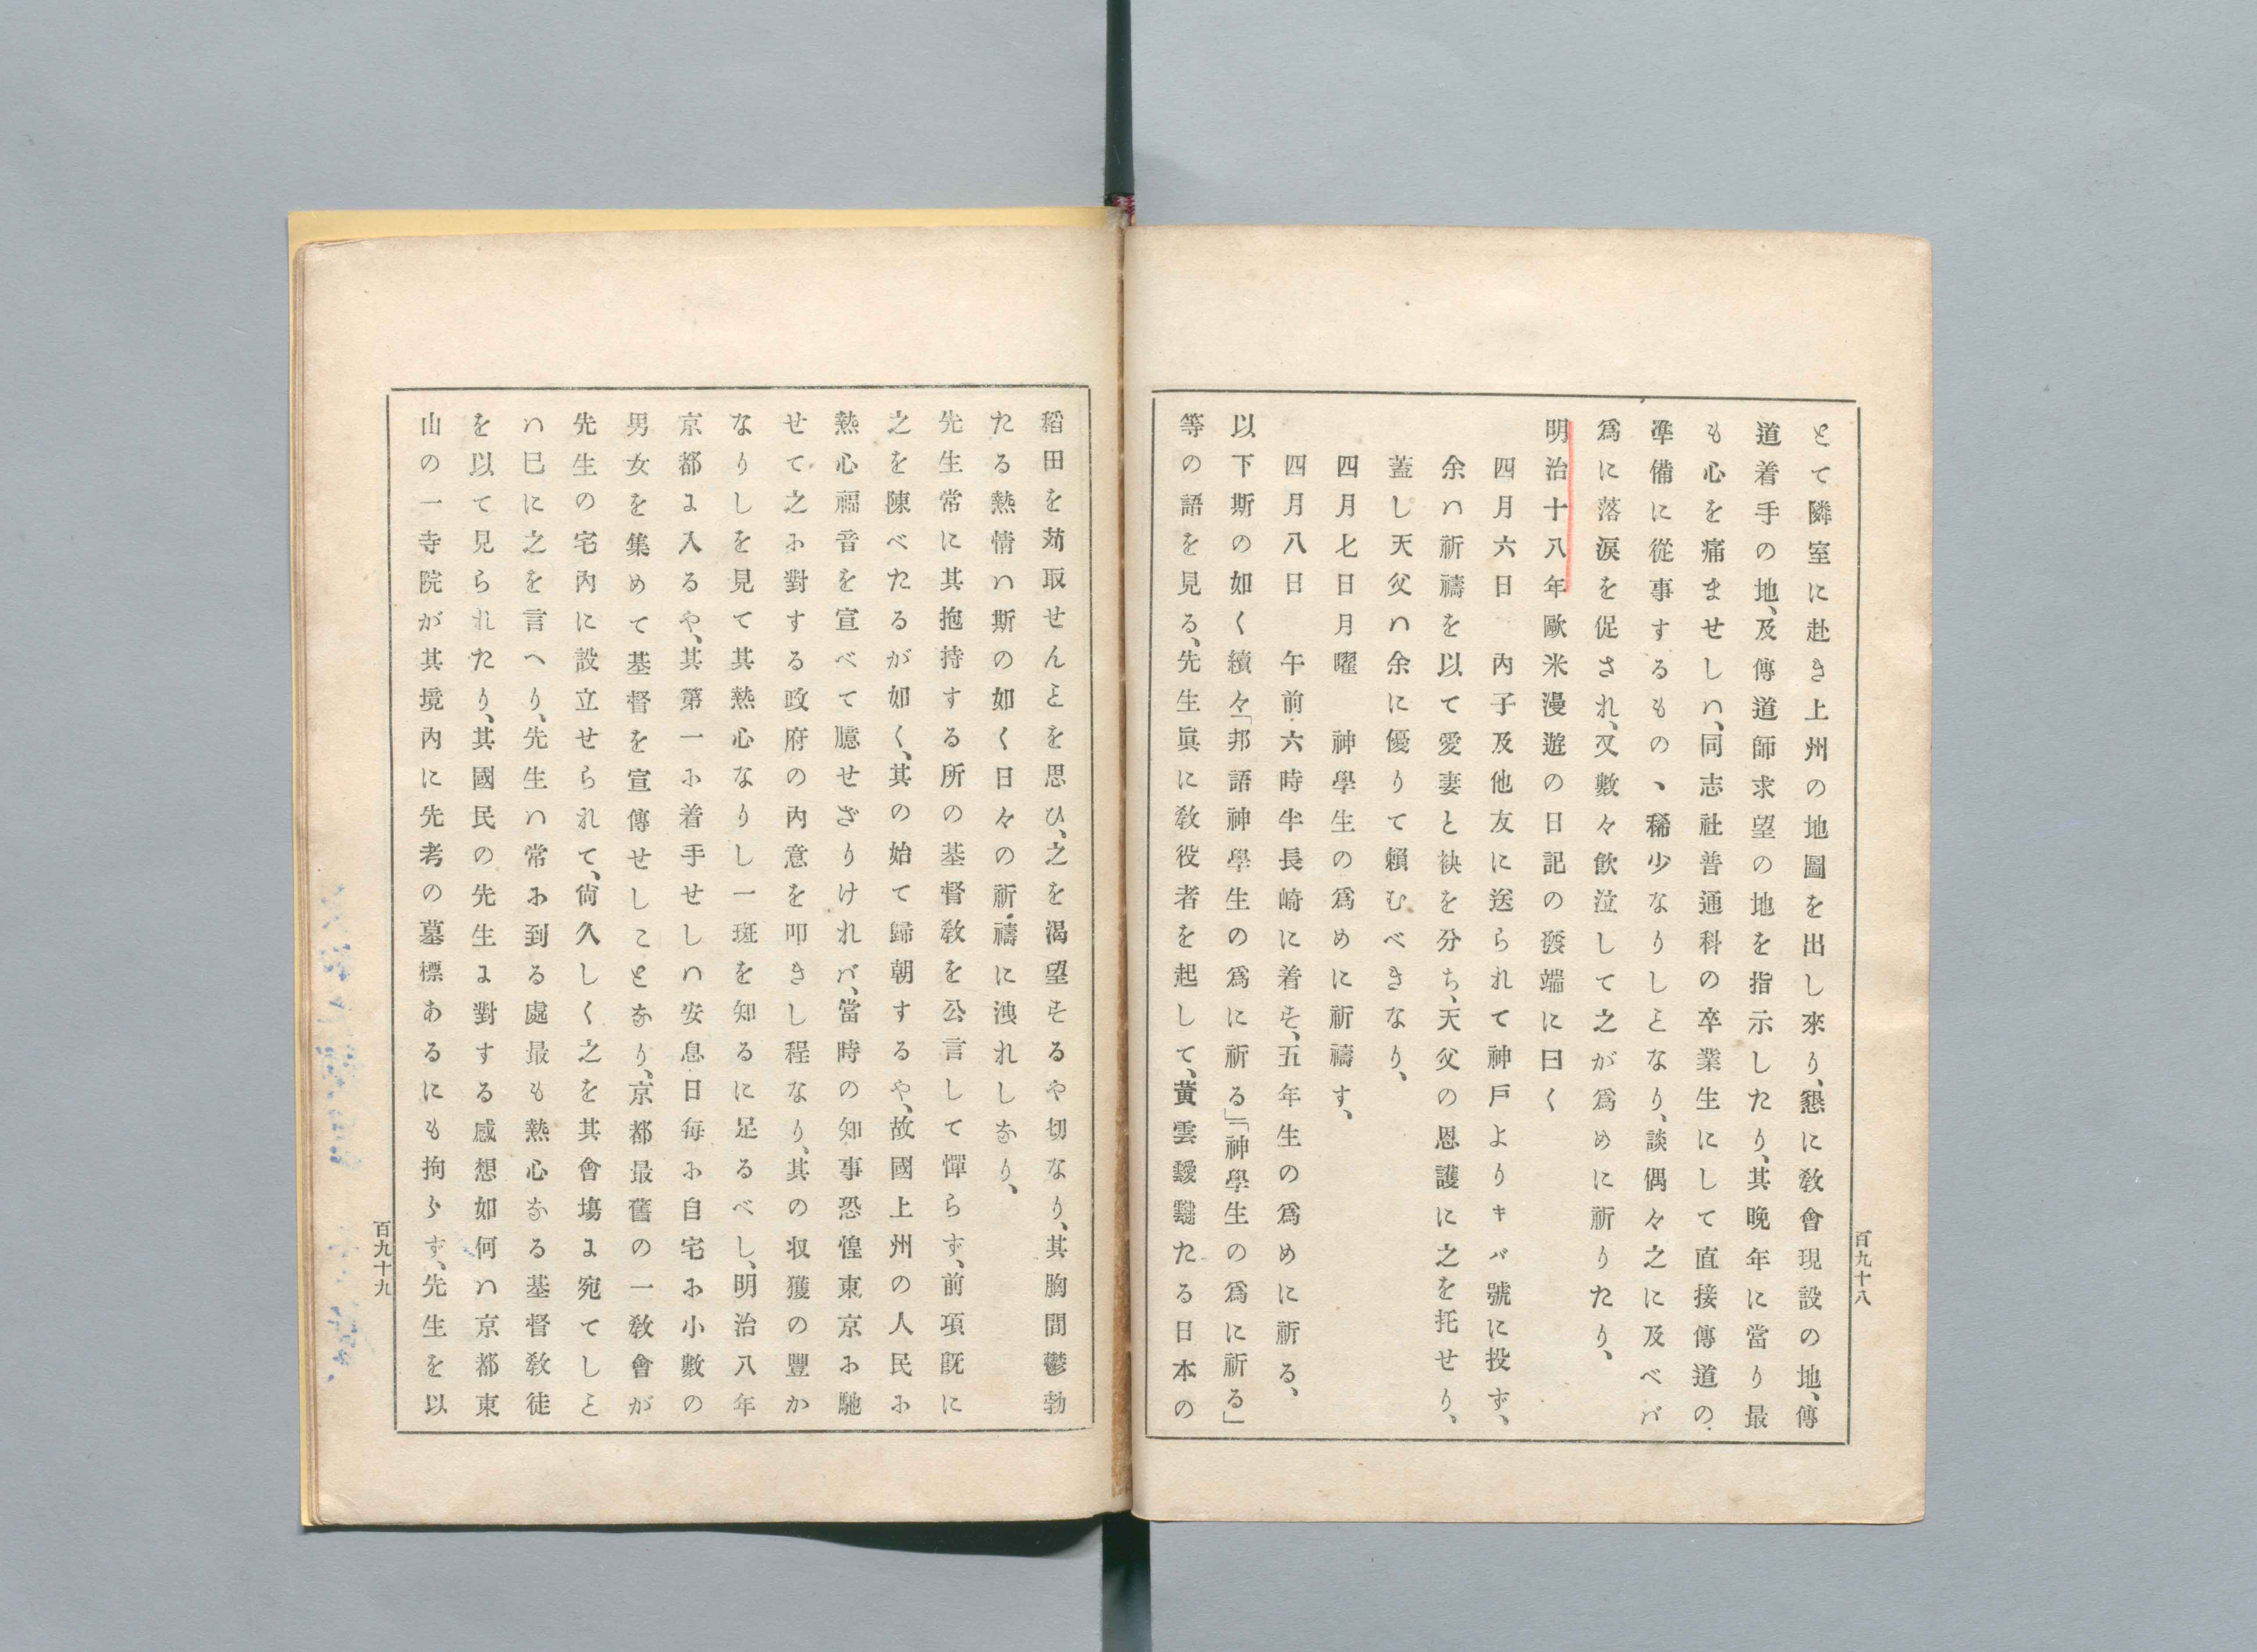 とて隣室に赴き上州の地圖を出し來り、懇に敎會現設の地、傳
道着手の地、及傳道師求望の地を指示したり、其晩年に當り最
も心を痛ませしハ、同志社普通科の卒業生にして直接傳道の
準備に從事するもの、稀少なりしとなり、談偶々之に及べバ
爲に落涙を促され、又數々飮泣して之が爲めに祈りたり、
明治十八年歐米漫遊の日記の發端に曰く
四月六日 內子及他友に送られて神戶よりキバ號に投ず、
余ハ祈禱を以て愛妻と袂を分ち、天父の恩護に之を托せり、
蓋し天父ハ余に優りて賴むべきなり、
四月七日月曜 神學生の爲めに祈禱す、
四月八日 午前六時半長崎に着す、五年生の爲めに祈る、
以下斯の如く續々「邦語神學生の爲に祈る」「神學生の爲に祈る」
等の語を見る、先生眞に敎役者を起して、黃雲靉靆たる日本の
百九十八
稻田を苅取せんとを思ひ、之を渴望するや切なり、其胸間鬱勃
たる熱情ハ斯の如く日々の祈禱に洩れしなり、
先生常に其抱持する所の基督敎を公言して憚らず、前項旣に
之を陳べたるが如く、其の始て歸朝するや、故國上州の人民に
熱心福音を宣べて臆せざりけれバ、當時の知事恐惶東京に馳
せて之に對する政府の內意を叩きし程なり、其の収獲の豐か
なりしを見て其熱心なりし一斑を知るに足るべし、明治八年
京都に入るや、其第一に着手せしハ安息日每に自宅に小數の
男女を集めて基督を宣傳せしことなり、京都最舊の一敎會が
先生の宅內に設立せられて、尙久しく之を其會塲に宛てしと
ハ已に之を言へり、先生ハ常に到る處最も熱心なる基督敎徒
を以て見られたり、其國民の先生に對する感想如何ハ京都東
山の一寺院が其境內に先考の墓標あるにも拘らず、先生を以
百九十九